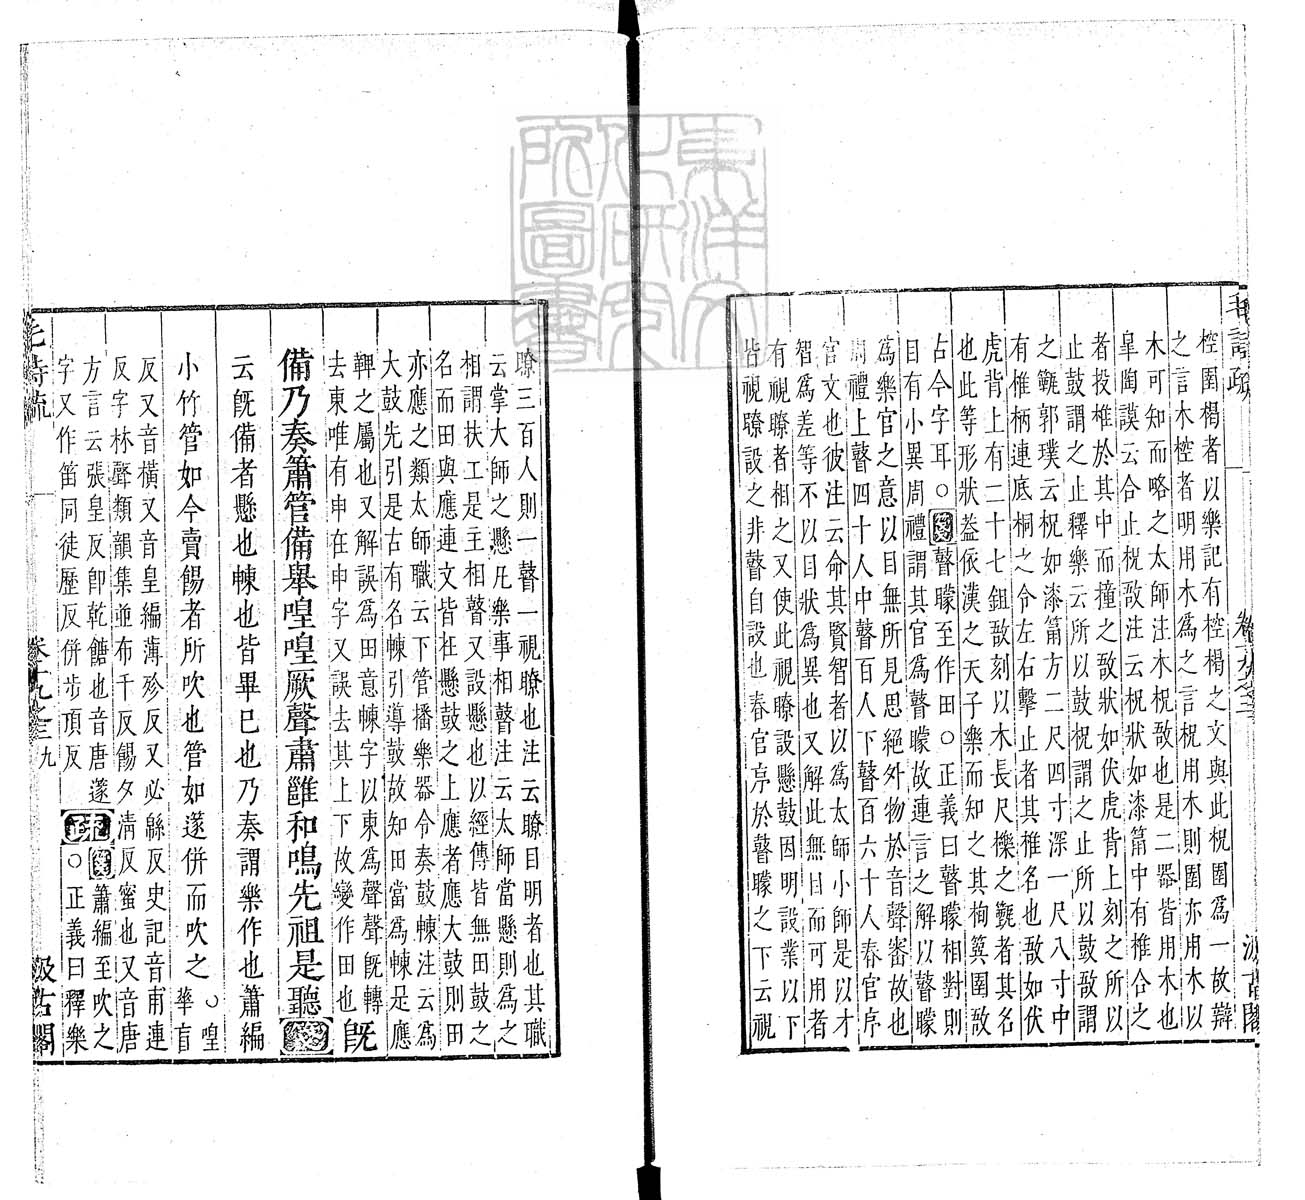 毛詩疏
卷十九之三
汲古閣
椌圉楬者以樂記有椌楬之文與此柷圉爲一故辯
之言木椌者明用木爲之言柷用木則圉亦用木以
木可知而略之太師注木柷敔也是二器皆用木也
臯陶謨云合止柷敔注云柷狀如漆筩中有椎合之
者投椎於其中而撞之敔狀如伏虎背上刻之所以
止鼓謂之止釋樂云所以鼓柷謂之止所以鼓敔謂
之籈郭璞云柷如漆筩方二尺四寸深一尺八寸中
有椎柄連底桐之令左右擊止者其椎名也敔如伏
虎背上有二十七鉏敔刻以木長尺櫟之籈者其名
也此等形狀葢依漢之天子樂而知之其栒簨圉敔
古今字耳○箋瞽矇至作田○正義曰瞽矇相對則
目有小異周禮謂其官爲瞽矇故連言之解以瞽矇
爲樂官之意以目無所見思絕外物於音聲審故也
周禮上瞽四十人中瞽百人下瞽百六十人春官序
官文也彼注云命其賢智者以爲太師小師是以才
智爲差等不以目狀爲異也又解此無目而可用者
有視瞭者相之又使此視瞭設懸鼓因明設業以下
皆視瞭設之非瞽自設也春官序於瞽矇之下云視
瞭三百人則一瞽一視瞭也注云瞭目明者也其職
云掌大師之懸凡樂事相瞽注云太師當懸則爲之
相謂扶工是主相瞽又設懸也以經傳皆無田鼓之
名而田與應連文皆在懸鼓之上應者應大鼓則田
亦應之類太師職云下管播樂器令奏鼓朄注云爲
大鼓先引是古有名朄引導鼓故知田當爲朄是應
鞞之屬也又解誤爲田意朄字以柬爲聲聲旣轉
去柬唯有申在申字又誤去其上下故變作田也
旣
備乃奏簫管備舉喤喤厥聲肅雝和鳴先祖是聽箋
云旣備者懸也朄也皆畢已也乃奏謂樂作也簫編
小竹管如今賣餳者所吹也管如䆳併而吹之
○喤
華盲
反又音橫又音皇編薄殄反又必緜反史記音甫連
反字林聲類韻集並布千反餳夕淸反蜜也又音唐
方言云張皇反卽乾餹也音唐䆳
字又作笛同徒歷反併步頂反
疏
箋簫編至吹之
○正義曰釋樂
毛詩疏
卷十九之三
九
汲古閣
東洋文化研究所圖書